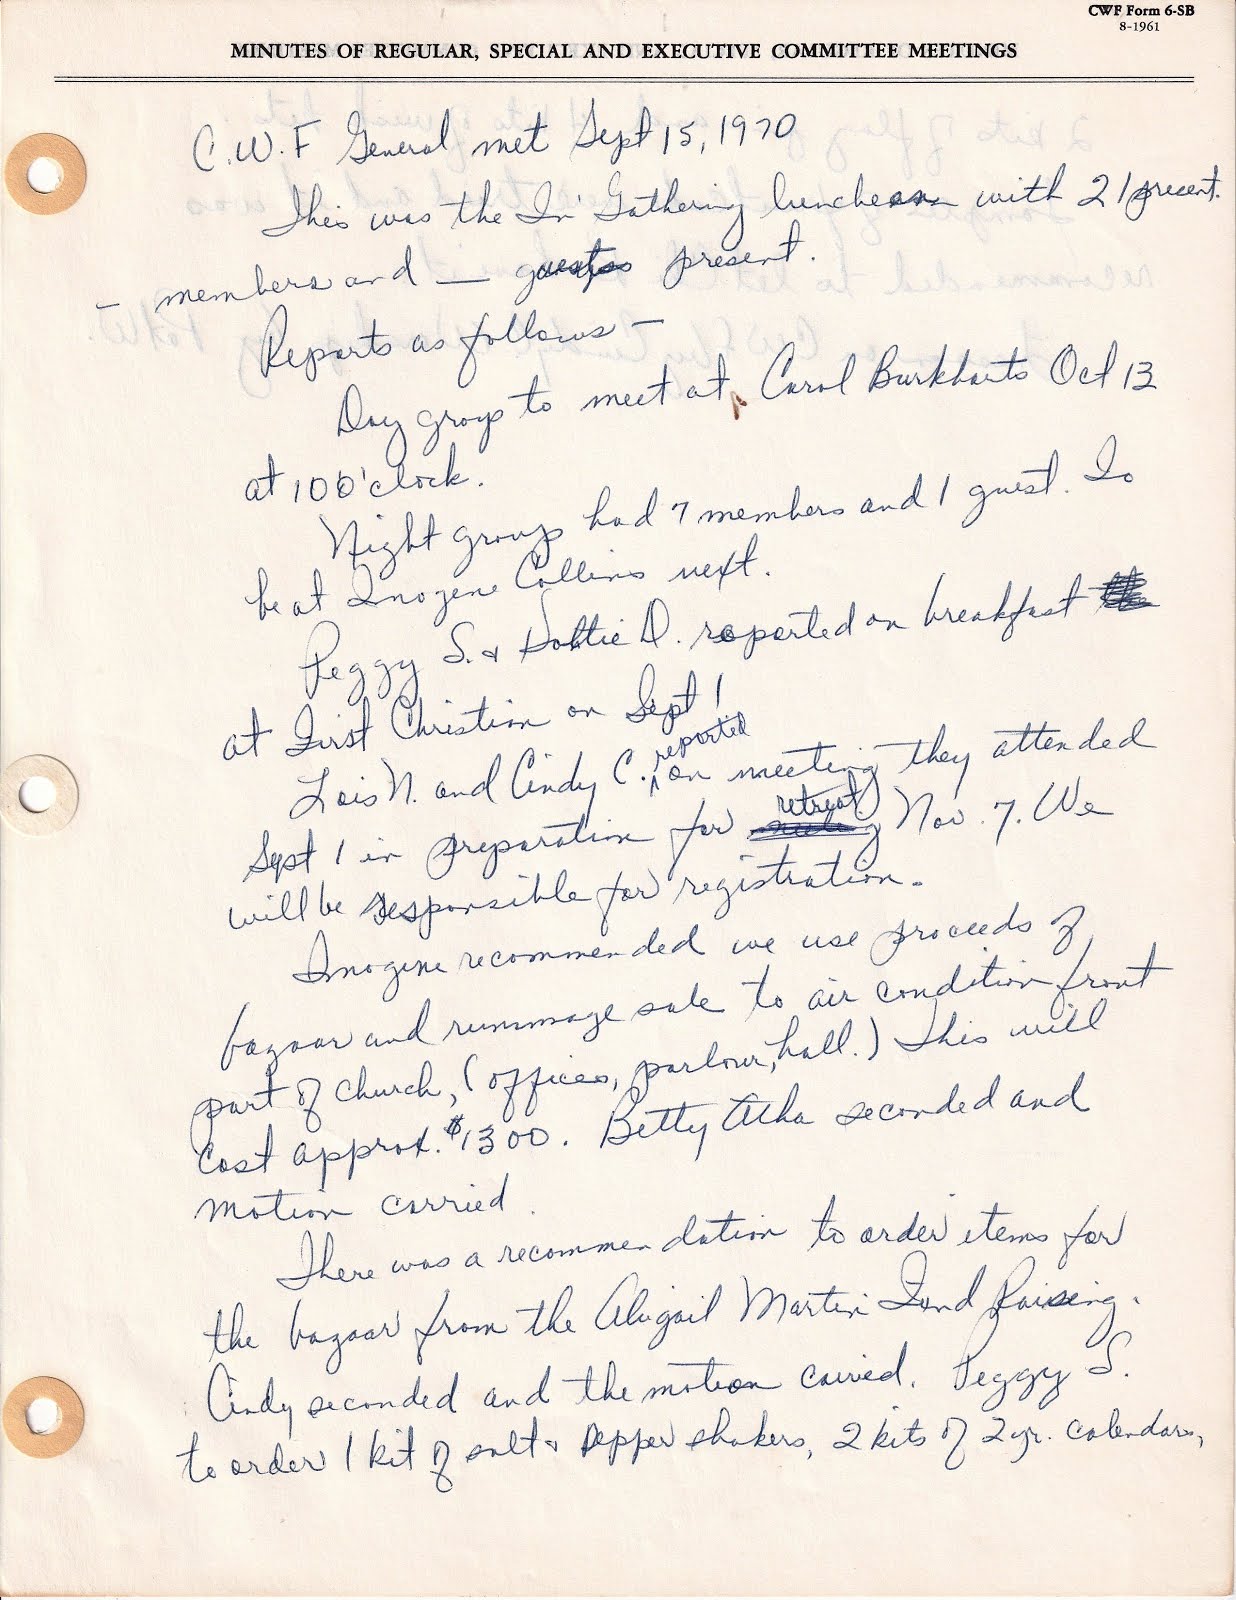 CWF Form 6-SB
8-1961
MINUTES OF REGULAR, SPECIAL AND EXECUTIVE COMMITTEE MEETINGS
C.W.F General met Sept 15, 1970
This was the In Gathering luncheon with 21 present.
– members and — guests present.
Reports as follows –
Day group to meet at Carol Burkharts Oct 13
at 10 O'clock.
Night group had 7 members and 1 guest. To
be at Imogene Collins next.
Peggy S. & Dottie D. reported on breakfast
at First Christian on Sept 1
Lois N. and Cindy C. reported on meeting they attended
Sept 1 in preparation for retreat Nov. 7. We
will be responsible for registration.
Imogene recommended we use proceeds of
bazaar and rummage sale to air condition front
part of church, (offices, parlour, hall.) This will
cost approx. $1300. Betty Atha seconded and
motion carried.
There was a recommendation to order items for
the bazaar from the Abigail Martin Fund Raising.
Cindy seconded and the motion carried. Peggy S.
to order 1 kit of salt & pepper shakers, 2 kits of 2 yr. calendars,